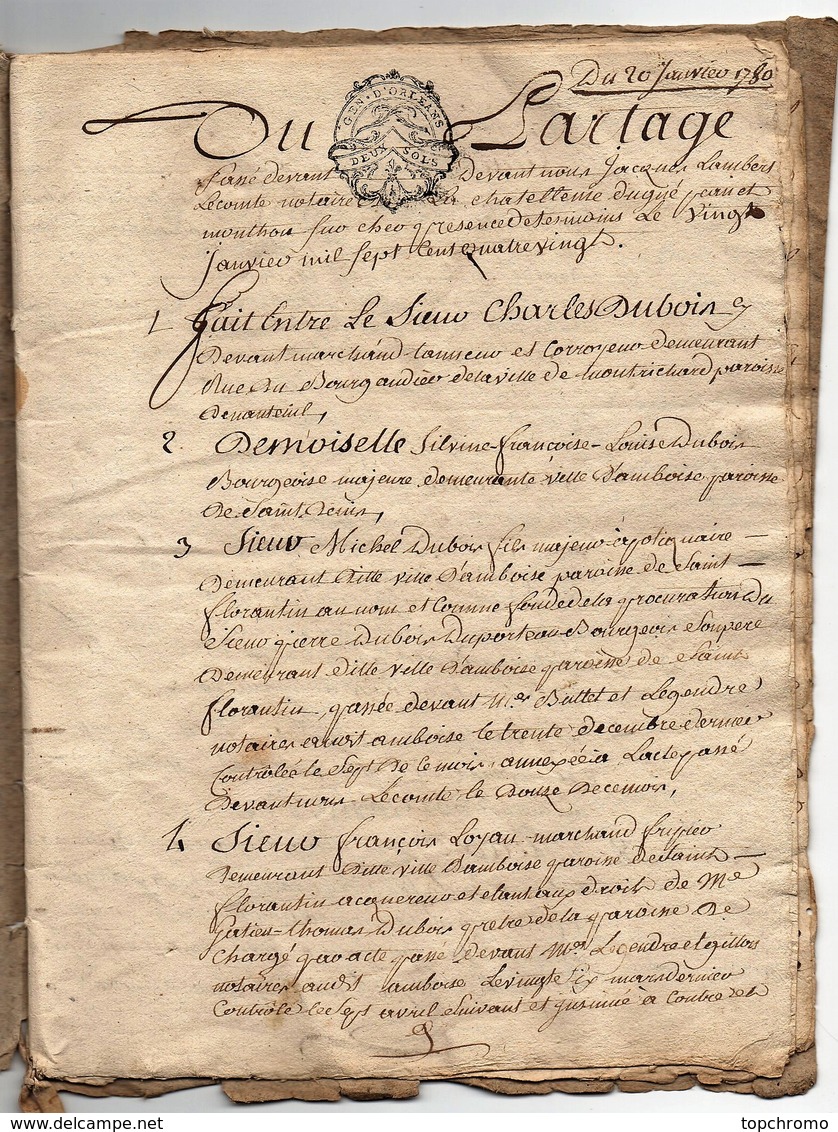 Du 20 Janvier 1780
GEN. D'ORLEANS
DEUX SOLS
Du Partage
Passé devant Devant nous Jacques Lambert
Lecomte notaire La chatellenie dugué péan et
monthou Sur cher presence des temoins Le Vingt
janvier mil sept Cent quatre vingt.
1 Fait Entre Le Sieur Charles Dubois
Devant marchand tanneur et Corroyeur demeurant
Rue Du Bourg de la ville de Montrichard paroisse
De nanteuil,
2 Demoiselle Silvine françoise Louise Dubois
Bourgeoise majeure demeurante ville D'amboise paroisse
De Saint Denis,
3 Sieur Michel Dubois fils majeur apotiquaire
Demeurant Ditte ville D'amboise paroisse de Saint
florantin au nom et Comme fondé de la procuration Du
Sieur pierre Dubois Duporteau Bourgeois Son pere
Demeurant Ditte ville D'amboise paroisse de Saint
florantin, passée devant Mes Buttet et Legendre
notaires audit amboise le trente Decembre dernier
Controlée le Sept De ce mois, annexée a L'acte passé
Devant nous Lecomte le Douze De ce mois,
4 Sieur François Loyau marchand fripier
Demeurant Ditte ville D'amboise paroisse de Saint
florantin acquereur et étant aux droits de Me
Gatien Thomas Dubois pretre de la paroisse De
Chargé par acte passé devant Mes Legendre et gillois
notaires audit amboise Le vingt Six mars dernier
Controlé le Sept avril Suivant et insinué a
topchromo